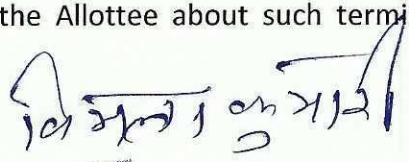 the Allottee about such termi
विमला कुमारी